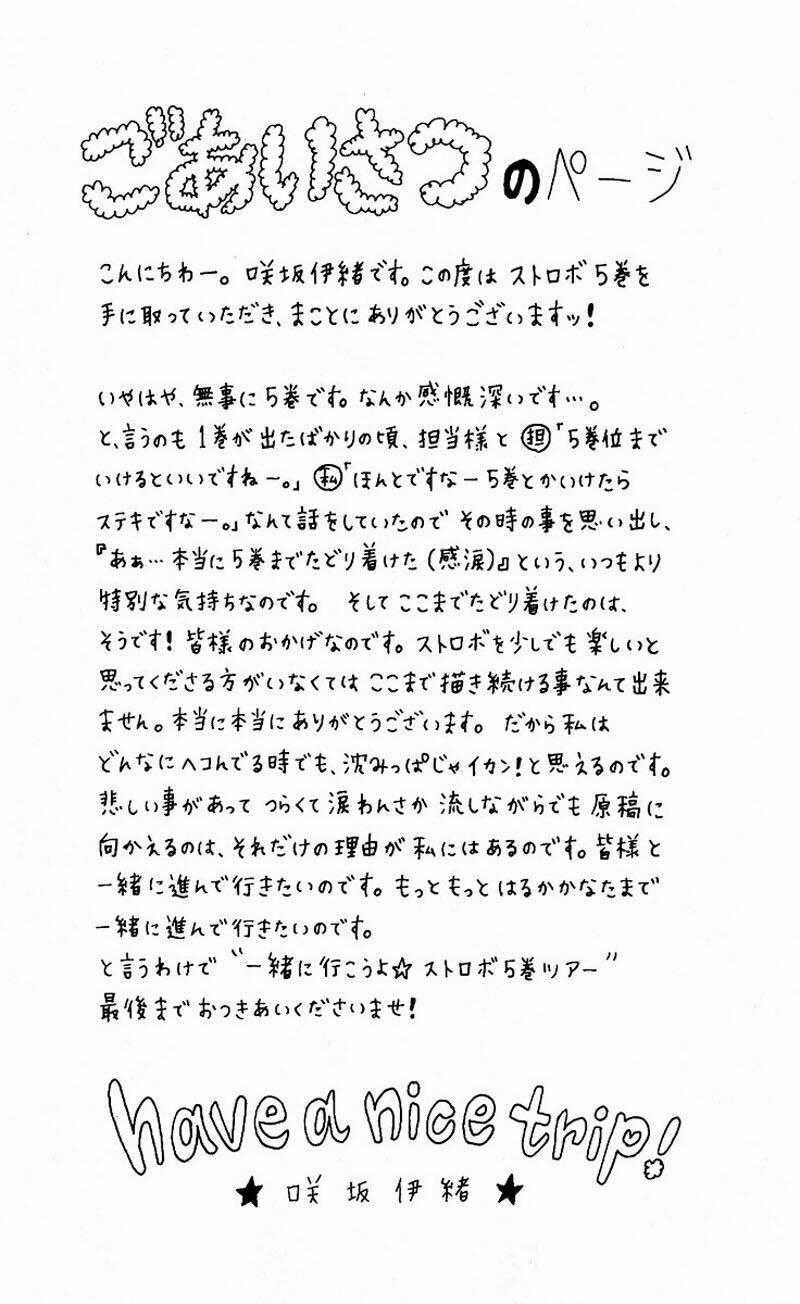 ごあいさつのページ
こんにちわー。咲坂伊緒です。この度は ストロボ5巻を
手に取っていただき、まことに ありがとうございますッ!
いやはや、無事に5巻です。なんか感慨深いです…。
と、言うのも 1巻が出たばかりの頃、担当様と 担「5巻位まで
いけるといいですねー。」 私「ほんとですなー5巻とかいけたら
ステキですなー。」なんて話をしていたので その時の事を思い出し、
『あぁ…本当に5巻までたどり着けた(感涙)』という、いつもより
特別な気持ちなのです。 そして ここまでたどり着けたのは、
そうです! 皆様のおかげなのです。ストロボを少しでも楽しいと
思ってくださる方がいなくては ここまで描き続ける事なんて出来
ません。本当に本当にありがとうございます。 だから私は
どんなにヘコんでる時でも、沈みっぱじゃイカン!と思えるのです。
悲しい事があって つらくて涙わんさか 流しながらでも原稿に
向かえるのは、それだけの理由が私にはあるのです。皆様と
一緒に進んで行きたいのです。もっともっと はるかかなたまで
一緒に進んで行きたいのです。
と言うわけで "一緒に行こうよ☆ ストロボ5巻ツアー"
最後までおつきあいくださいませ!
have a nice trip!
★ 咲坂伊緒 ★